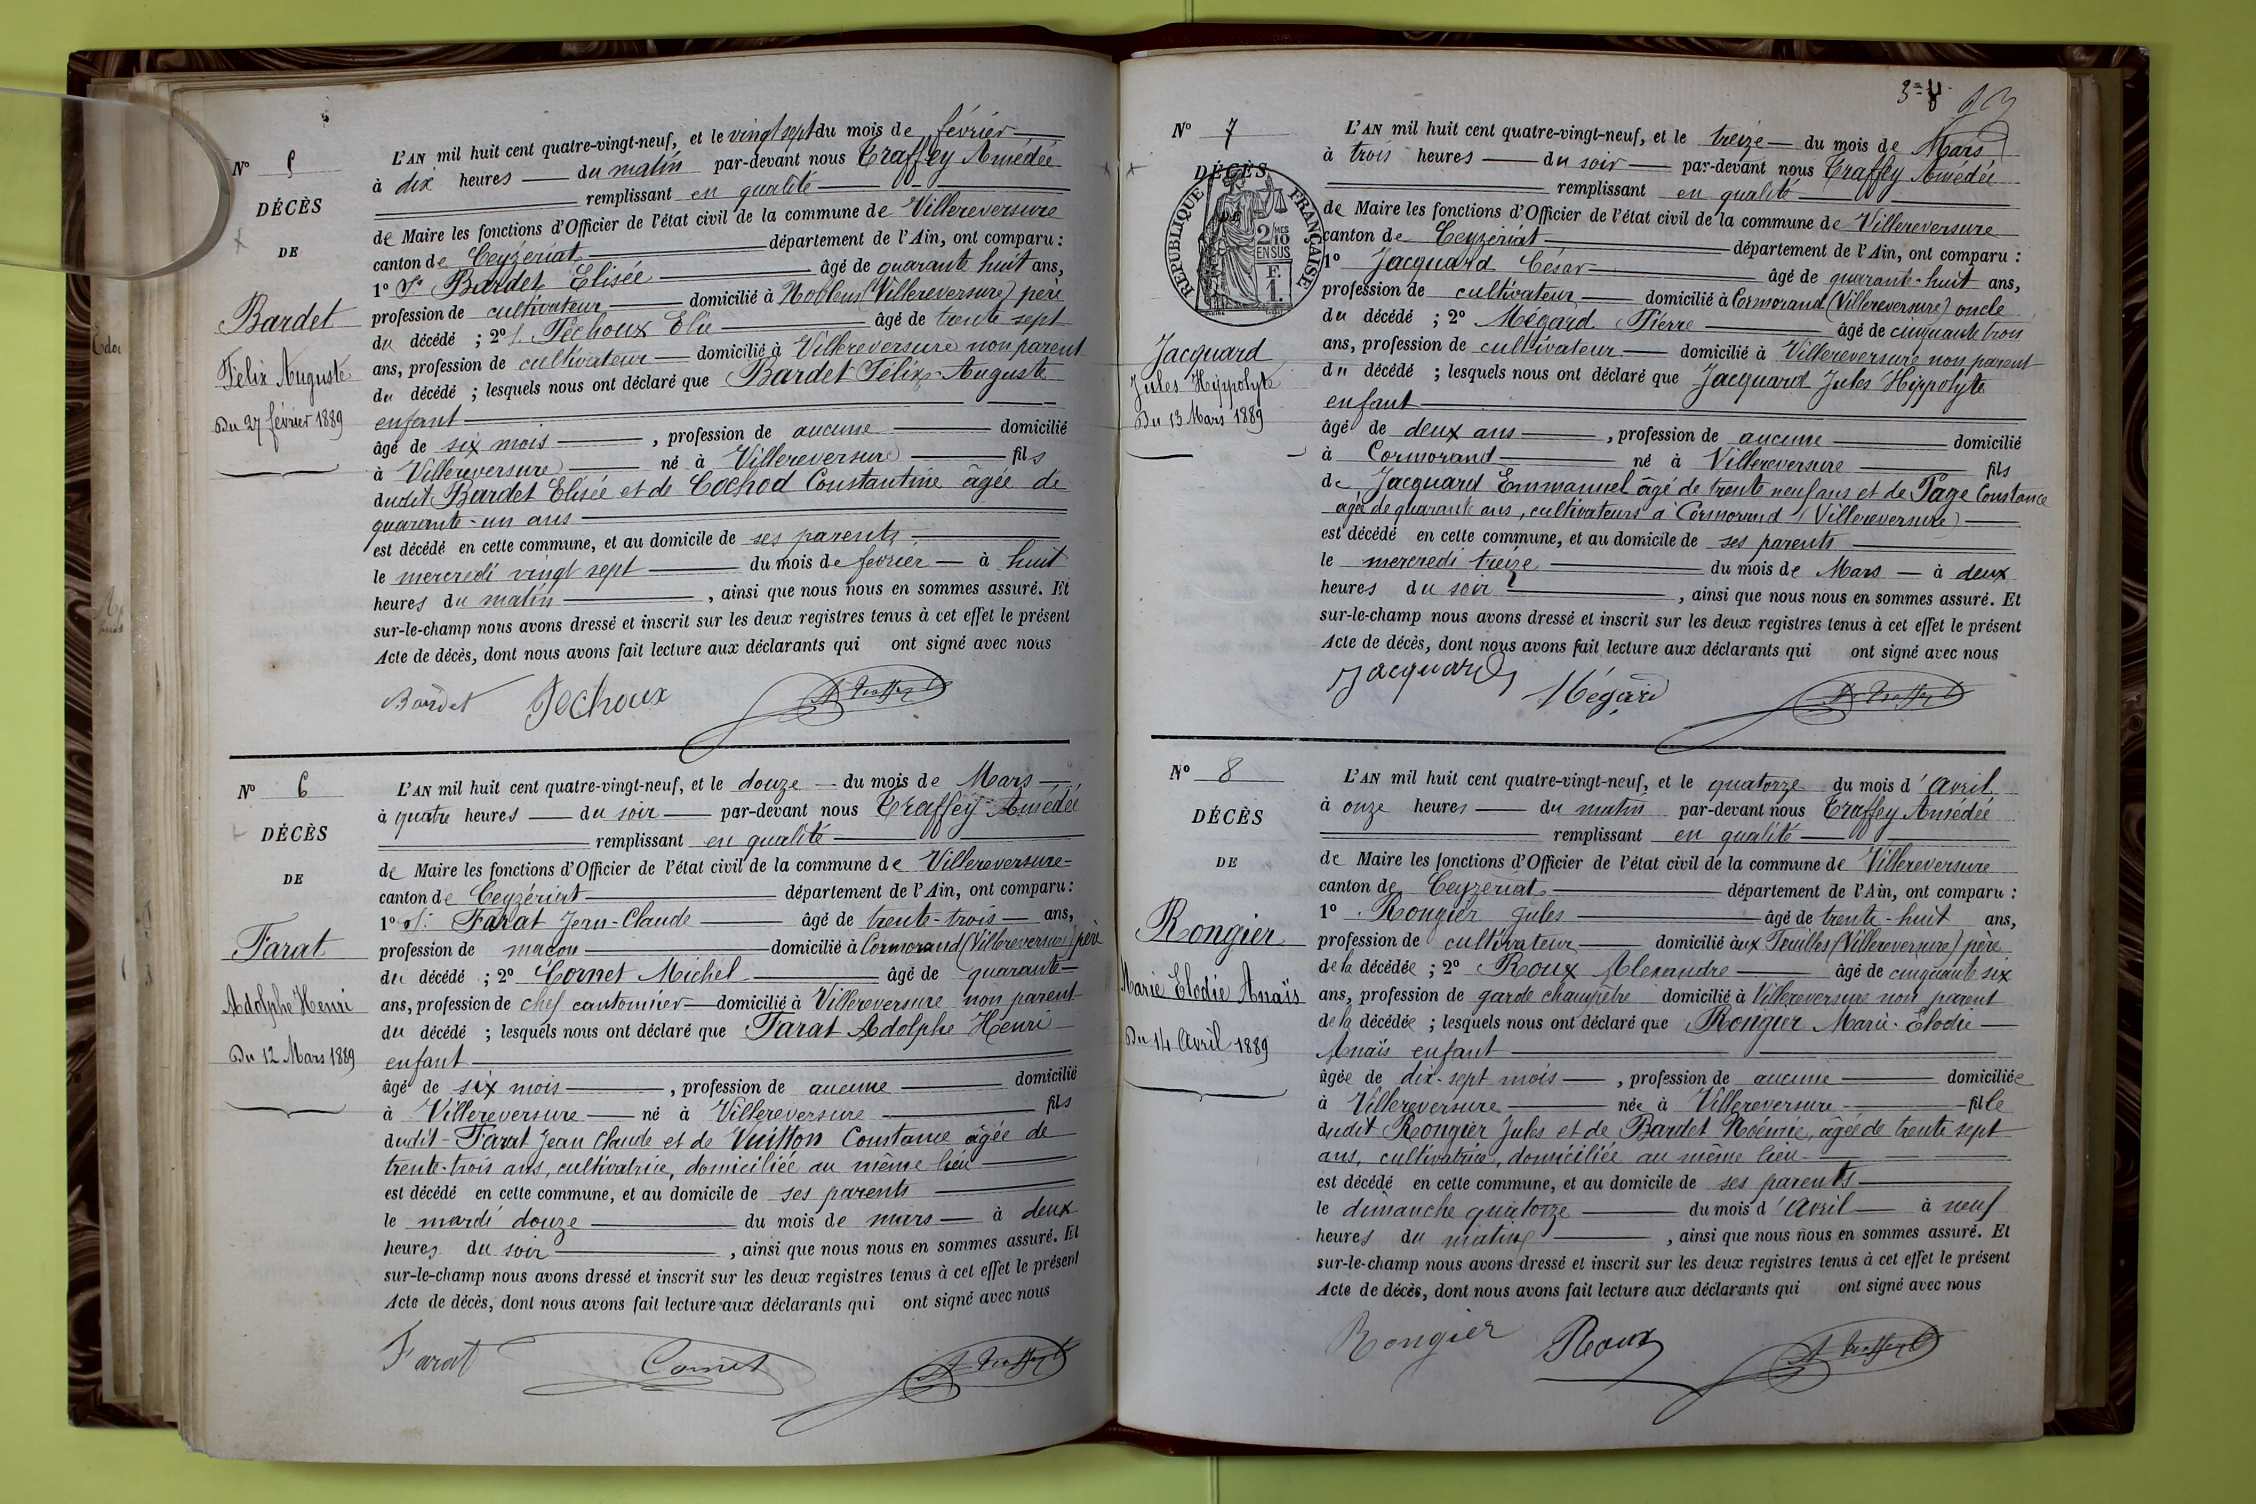 N° 5
DÉCÈS
DE
Bardet
Félix Auguste
Du 27 février 1889
L'AN mil huit cent quatre-vingt-neuf, et le vingt sept du mois de février
à dix heures du matin par-devant nous Traffey Amédée
remplissant en qualité
de Maire les fonctions d'Officier de l'état civil de la commune de Villereversure
canton de Ceyzériat département de l'Ain, ont comparu :
1° S. Bardet Elisée âgé de quarante huit ans,
profession de cultivateur domicilié à Noblens (Villereversure) père
du décédé ; 2° S. Téchoux Elie âgé de trente sept
ans, profession de cultivateur domicilié à Villereversure non parent
du décédé ; lesquels nous ont déclaré que Bardet Félix Auguste
enfant
âgé de six mois , profession de aucune domicilié
à Villereversure né à Villereversure fils
dudit Bardet Elisée et de Cochod Constantine âgée de
quarante-un ans
est décédé en cette commune, et au domicile de ses parents
le mercredi vingt sept du mois de février à huit
heures du matin , ainsi que nous nous en sommes assuré. Et
sur-le-champ nous avons dressé et inscrit sur les deux registres tenus à cet effet le présent
Acte de décès, dont nous avons fait lecture aux déclarants qui ont signé avec nous
Bardet Téchoux A. Traffey
N° 6
DÉCÈS
DE
Farat
Adolphe Henri
Du 12 Mars 1889
L'AN mil huit cent quatre-vingt-neuf, et le douze du mois de Mars
à quatre heures du soir par-devant nous Traffey Amédée
remplissant en qualité
de Maire les fonctions d'Officier de l'état civil de la commune de Villereversure
canton de Ceyzériat département de l'Ain, ont comparu :
1° S. Farat Jean-Claude âgé de trente-trois ans,
profession de maçon domicilié à Cormorand (Villereversure) père
du décédé ; 2° Cornet Michel âgé de quarante
ans, profession de chef cantonnier domicilié à Villereversure non parent
du décédé ; lesquels nous ont déclaré que Farat Adolphe Henri
enfant
âgé de six mois , profession de aucune domicilié
à Villereversure né à Villereversure fils
dudit Farat Jean Claude et de Vuitton Constance âgée de
trente-trois ans, cultivatrice, domiciliée au même lieu
est décédé en cette commune, et au domicile de ses parents
le mardi douze du mois de mars à deux
heures du soir , ainsi que nous nous en sommes assuré. Et
sur-le-champ nous avons dressé et inscrit sur les deux registres tenus à cet effet le présent
Acte de décès, dont nous avons fait lecture aux déclarants qui ont signé avec nous
Farat Cornet A. Traffey
N° 7
DÉCÈS
RÉPUBLIQUE FRANÇAISE
2/10 MES
EN SUS
F.
1.
Jacquard
Jules Hippolyte
Du 13 Mars 1889
L'AN mil huit cent quatre-vingt-neuf, et le treize du mois de Mars
à trois heures du soir par-devant nous Traffey Amédée
remplissant en qualité
de Maire les fonctions d'Officier de l'état civil de la commune de Villereversure
canton de Ceyzériat département de l'Ain, ont comparu :
1° Jacquard César âgé de quarante-huit ans,
profession de cultivateur domicilié à Cormorand (Villereversure) oncle
du décédé ; 2° Mégard Pierre âgé de cinquante trois
ans, profession de cultivateur domicilié à Villereversure non parent
du décédé ; lesquels nous ont déclaré que Jacquard Jules Hippolyte
enfant
âgé de deux ans , profession de aucune domicilié
à Cormorand né à Villereversure fils
de Jacquard Emmanuel âgé de trente neuf ans et de Page Constance
âgée de quarante ans, cultivateurs à Cormorand (Villereversure)
est décédé en cette commune, et au domicile de ses parents
le mercredi treize du mois de Mars à deux
heures du soir , ainsi que nous nous en sommes assuré. Et
sur-le-champ nous avons dressé et inscrit sur les deux registres tenus à cet effet le présent
Acte de décès, dont nous avons fait lecture aux déclarants qui ont signé avec nous
Jacquard Mégard A. Traffey
N° 8
DÉCÈS
DE
Rongier
Marie Elodie Anaïs
Du 14 Avril 1889
L'AN mil huit cent quatre-vingt-neuf, et le quatorze du mois d'Avril
à onze heures du matin par-devant nous Traffey Amédée
remplissant en qualité
de Maire les fonctions d'Officier de l'état civil de la commune de Villereversure
canton de Ceyzériat département de l'Ain, ont comparu :
1° Rongier Jules âgé de trente-huit ans,
profession de cultivateur domicilié aux Feuilles (Villereversure) père
de la décédée ; 2° Roux Alexandre âgé de cinquante six
ans, profession de garde champêtre domicilié à Villereversure non parent
de la décédée ; lesquels nous ont déclaré que Rongier Marie-Elodie
Anaïs enfant
âgée de dix-sept mois , profession de aucune domiciliée
à Villereversure née à Villereversure fille
dudit Rongier Jules et de Bardet Noémie, âgée de trente sept
ans, cultivatrice, domiciliée au même lieu
est décédé en cette commune, et au domicile de ses parents
le dimanche quatorze du mois d'Avril à neuf
heures du matin , ainsi que nous nous en sommes assuré. Et
sur-le-champ nous avons dressé et inscrit sur les deux registres tenus à cet effet le présent
Acte de décès, dont nous avons fait lecture aux déclarants qui ont signé avec nous
Rongier Roux A. Traffey